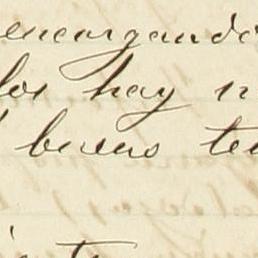 encargando
los hay n
buenos te